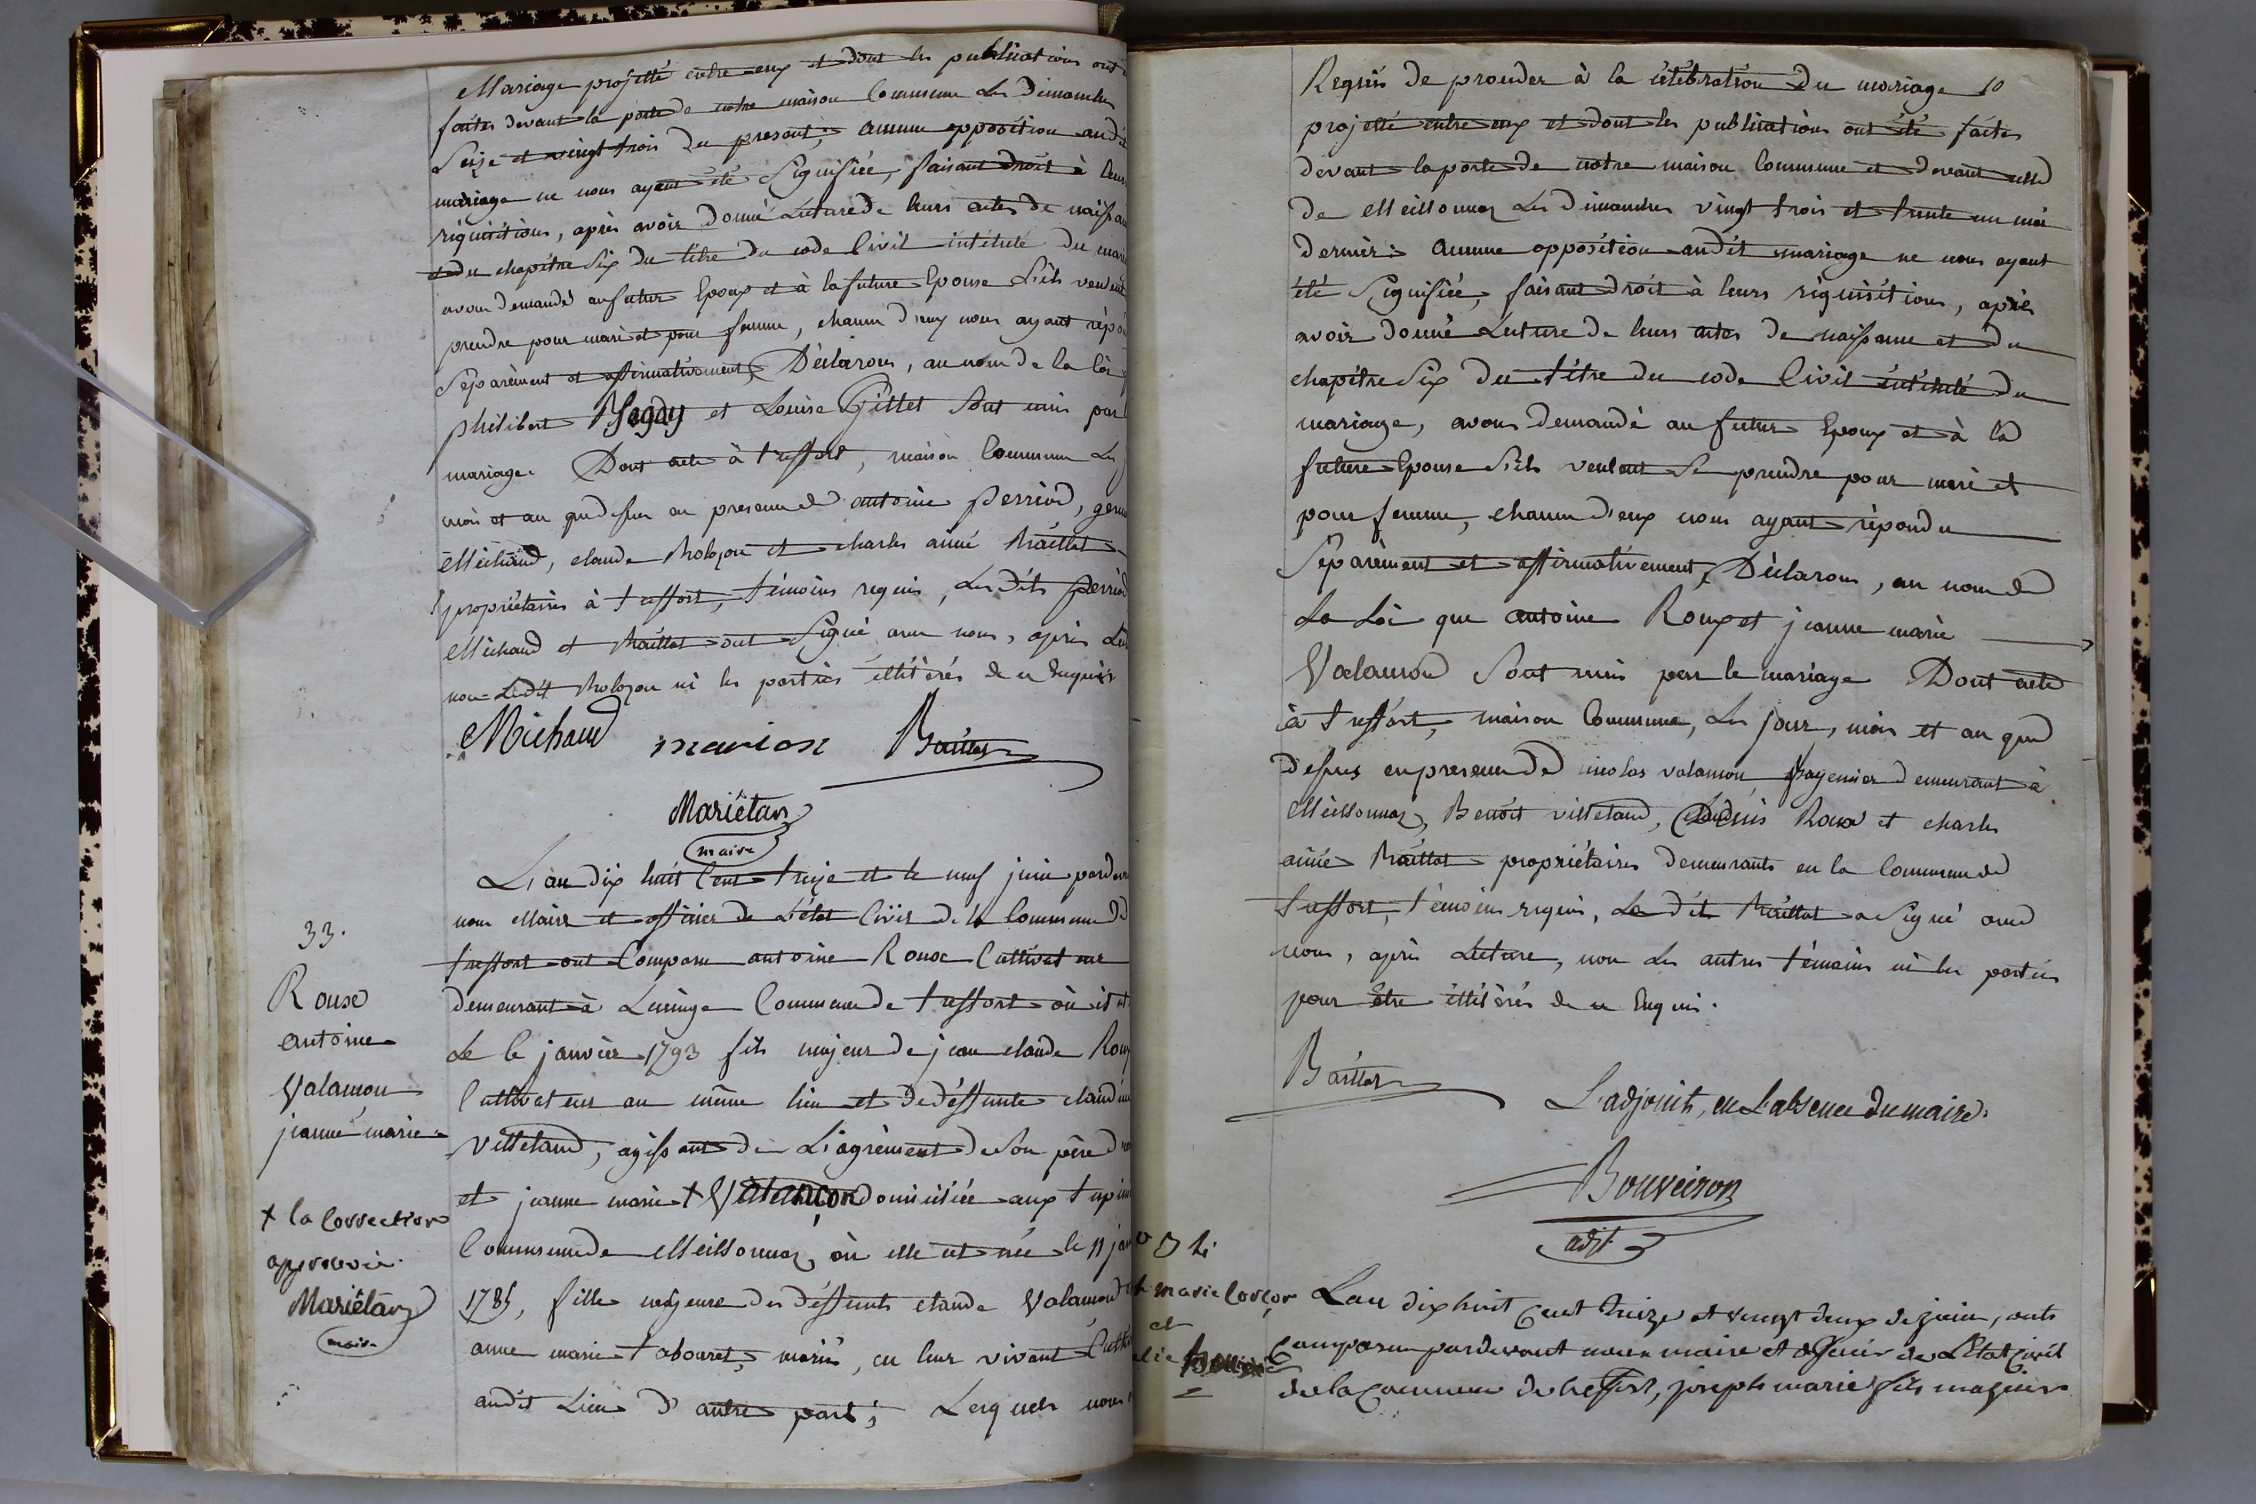 Mariage projetté entre eux et dont les publications ont
faites devant la porte de notre maison Commune Les Dimanches
Seize et vingt trois du present; aucune opposition audit
mariage ne nous ayant été Signifiée, faisant droit à leurs
réquisitions, après avoir donné Lecture de leurs actes de naissan
et du chapitre Six du titre du code Civil intitulé du mari
avons demandé au futur Epoux et à la future Epouse S'ils veulent
prendre pour mari et pour femme, chacun d'eux nous ayant répon
Séparément et affirmativement, Déclarons, au nom de la loi
philibert et Louise Gillet Sont unis par
mariage. Dont acte à treffort, maison Commune Les
mois et an que dessus en presence de antoine Perriod,
Michaud, claude Molozon et charles aimé Maillet
propriétaires à treffort, témoins requis, Les dits Perriod
Michaud et Maillet ont Signé avec nous, après Lec
non Ledit Molozon ni les parties illitérés de ce Enquis
Michaud marion
Mariétan
maire
33.
Roux
antoine
Valamon
jeanne marie
L'an dix huit Cent treize et le neuf juin pardev
nous Maire et officier de L'état Civil de la Commune de
treffort ont Comparu antoine Roux Cultivateur
demeurant à Lucinge Commune de treffort où il est
Le 6 janvier 1793 fils majeur de jean claude Roux
Cultivateur au même lieu et de déffunte claudine
Villetand, agissant de L'agrément de Son père d'u
et jeanne marie + Valamon domiciliée aux tupin
Commune de Meillonnaz où elle est née le 11 jan
1785, fille majeure des déffunts claude Valamon
anne marie tabouret, mariés, en leur vivant Cultiv
audit Lieu d'autre part; Lesquels nous
+ la Correction
approuvée.
Mariétan
maire
Requis de proceder à la célébration du mariage 10
projetté entre eux et dont les publications ont été faites
devant la porte de notre maison Commune et devant celle
de Meillonnaz Les dimanches vingt trois et trente mai
dernier: aucune opposition audit mariage ne nous ayant
été Signifiée, faisant droit à leurs réquisitions, après
avoir donné Lecture de leurs actes de naissance et du
chapitre Six du titre du code Civil intitulé du
mariage, avons demandé au futur Epoux et à la
future Epouse S'ils veulent Se prendre pour mari et
pour femme, chacun d'eux nous ayant répondu
Séparément et affirmativement, Déclarons, au nom de
La Loi que antoine Roux et jeanne marie
Valamon Sont unis par le mariage Dont acte
à treffort, maison Commune, Les jour, mois et an que
dessus en presence de nicolas valamon demeurant à
Meillonnaz, Benoit villetand, Roux et charles
aimé Maillet propriétaires demeurants en la Commune de
treffort, témoins requis, Le dit Maillet a Signé avec
nous, après Lecture, non Les autres témoins ni les parties
pour être illitérés de ce Enquis.
L'adjoint, en L'absence du maire.
Bouveiron
adjt
marie
et
Lan dix huit Cent treize et vingt deux de juin, ont
Comparu pardevant nous maire et officier de L'Etat Civil
de la Commune de treffort, joseph marie fils majeur